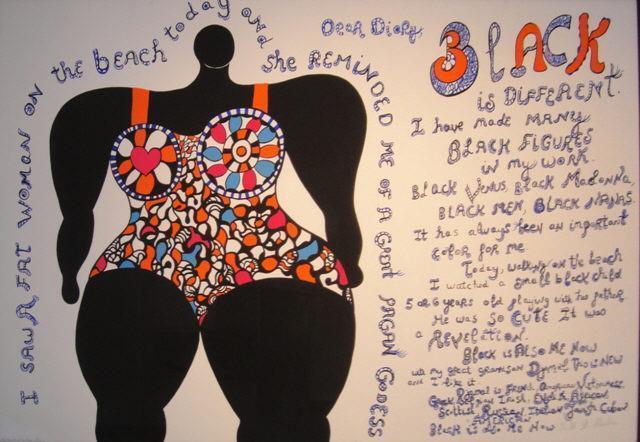 I SAW A FAT WOMAN ON the BEACH today and she REMINDED ME of A GREAT PAGAN GODESS
Dear Diary
BLACK
is DIFFERENT.
I have made MANY
BLACK FIGURES
in my work.
Black Venus, Black Madonna
BLACK MEN, BLACK NANAS.
It has always been an important
color for me.
Today, walking on the beach
I watched a small black child
5 or 6 years old playing with his father
He was SO CUTE It was
a REVELATION.
Black is ALSO ME NOW
with my great grandson Djamal Too is NEW
and I like it.
Djamal is French, American Vietnamese,
Greek German Irish, English African,
Scottish, Russian Italian Jewish Cuban
AMERICAN
Black is also Me Now